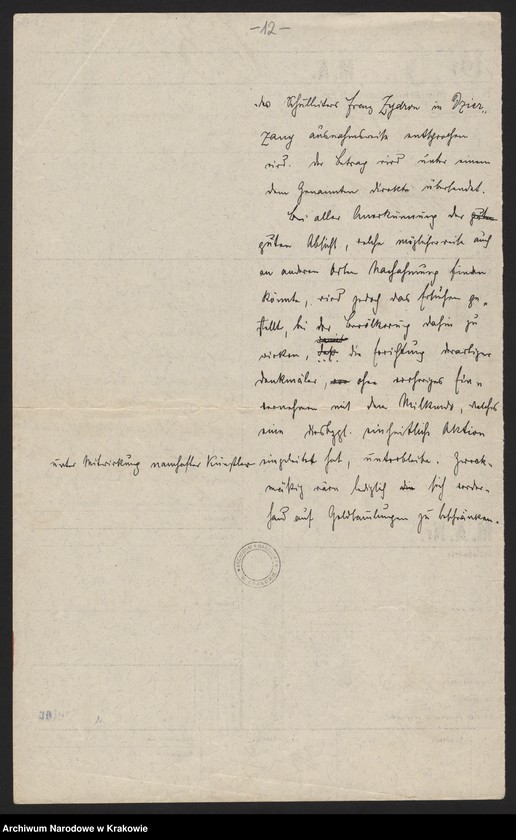 -12-
des Schulleiters Franz Zydron in Dzier„
zany ausnahmsweise entsprochen
wird. Der Betrag wird unter einem
dem Genannten direkte übersendet.
Bei aller Anerkennung der guten
guten Absicht, welche möglicherweise auch
an anderen Orten Nachahmung finden
könnte, wird jedoch das Ersuchen ge„
stellt, bei der Bevölkerung dahin zu
damit
wirken, daß die Errichtung derartiger
Denkmäler, ohne vorheriges Ein„
vernehmen mit dem Milkundo, welches
eine diesbezgl. einheitliche Aktion
unter Mitwirkung namhafter Künstler eingeleitet hat, unterbleibe. Zweck-
mäßig wäre lediglich sich vorder-
hand auf Geldsamlungen zu beschränken.
ARCHIWUM NARODOWE W KRAKOWIE
Archiwum Narodowe w Krakowie